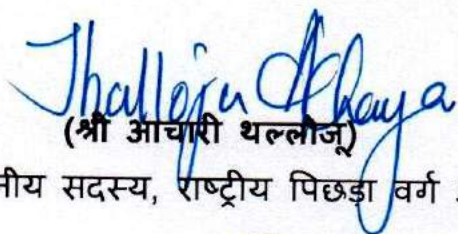 Thalloju Acharya
(श्री आचारी थल्लौजू)
नीय सदस्य, राष्ट्रीय पिछड़ा वर्ग